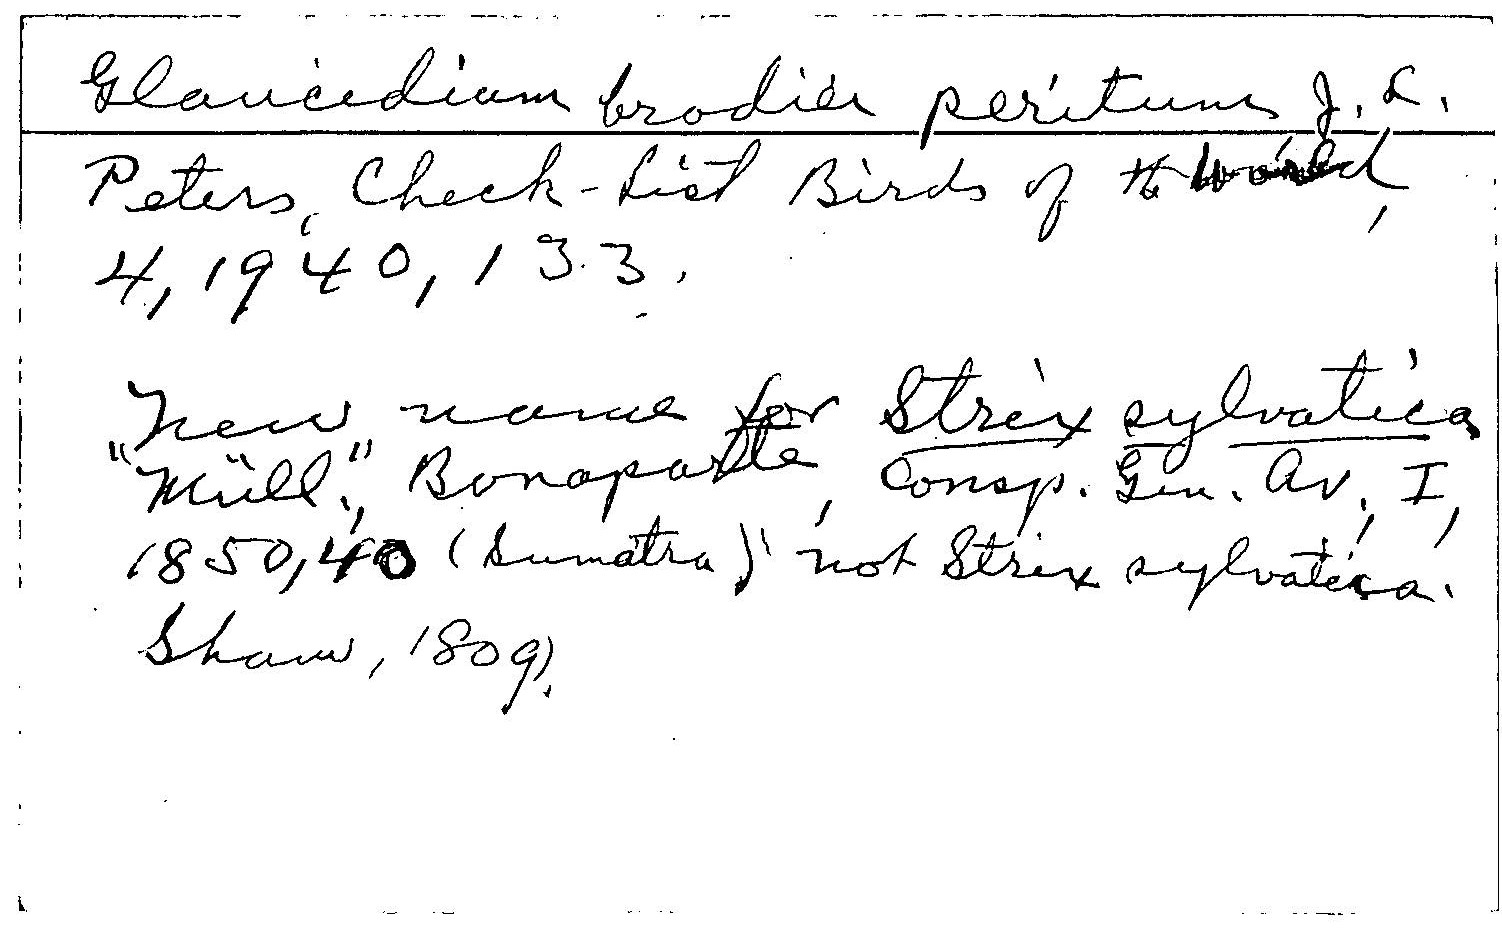 Glaucidium brodiei peritum J. L.
Peters, Check-List Birds of the World,
4, 1940, 133.
New name for Strix sylvatica
"Müll.," Bonaparte, Consp. Gen. Av., I,
1850, 40 (Sumatra) not Strix sylvatica
Shaw, 1809).